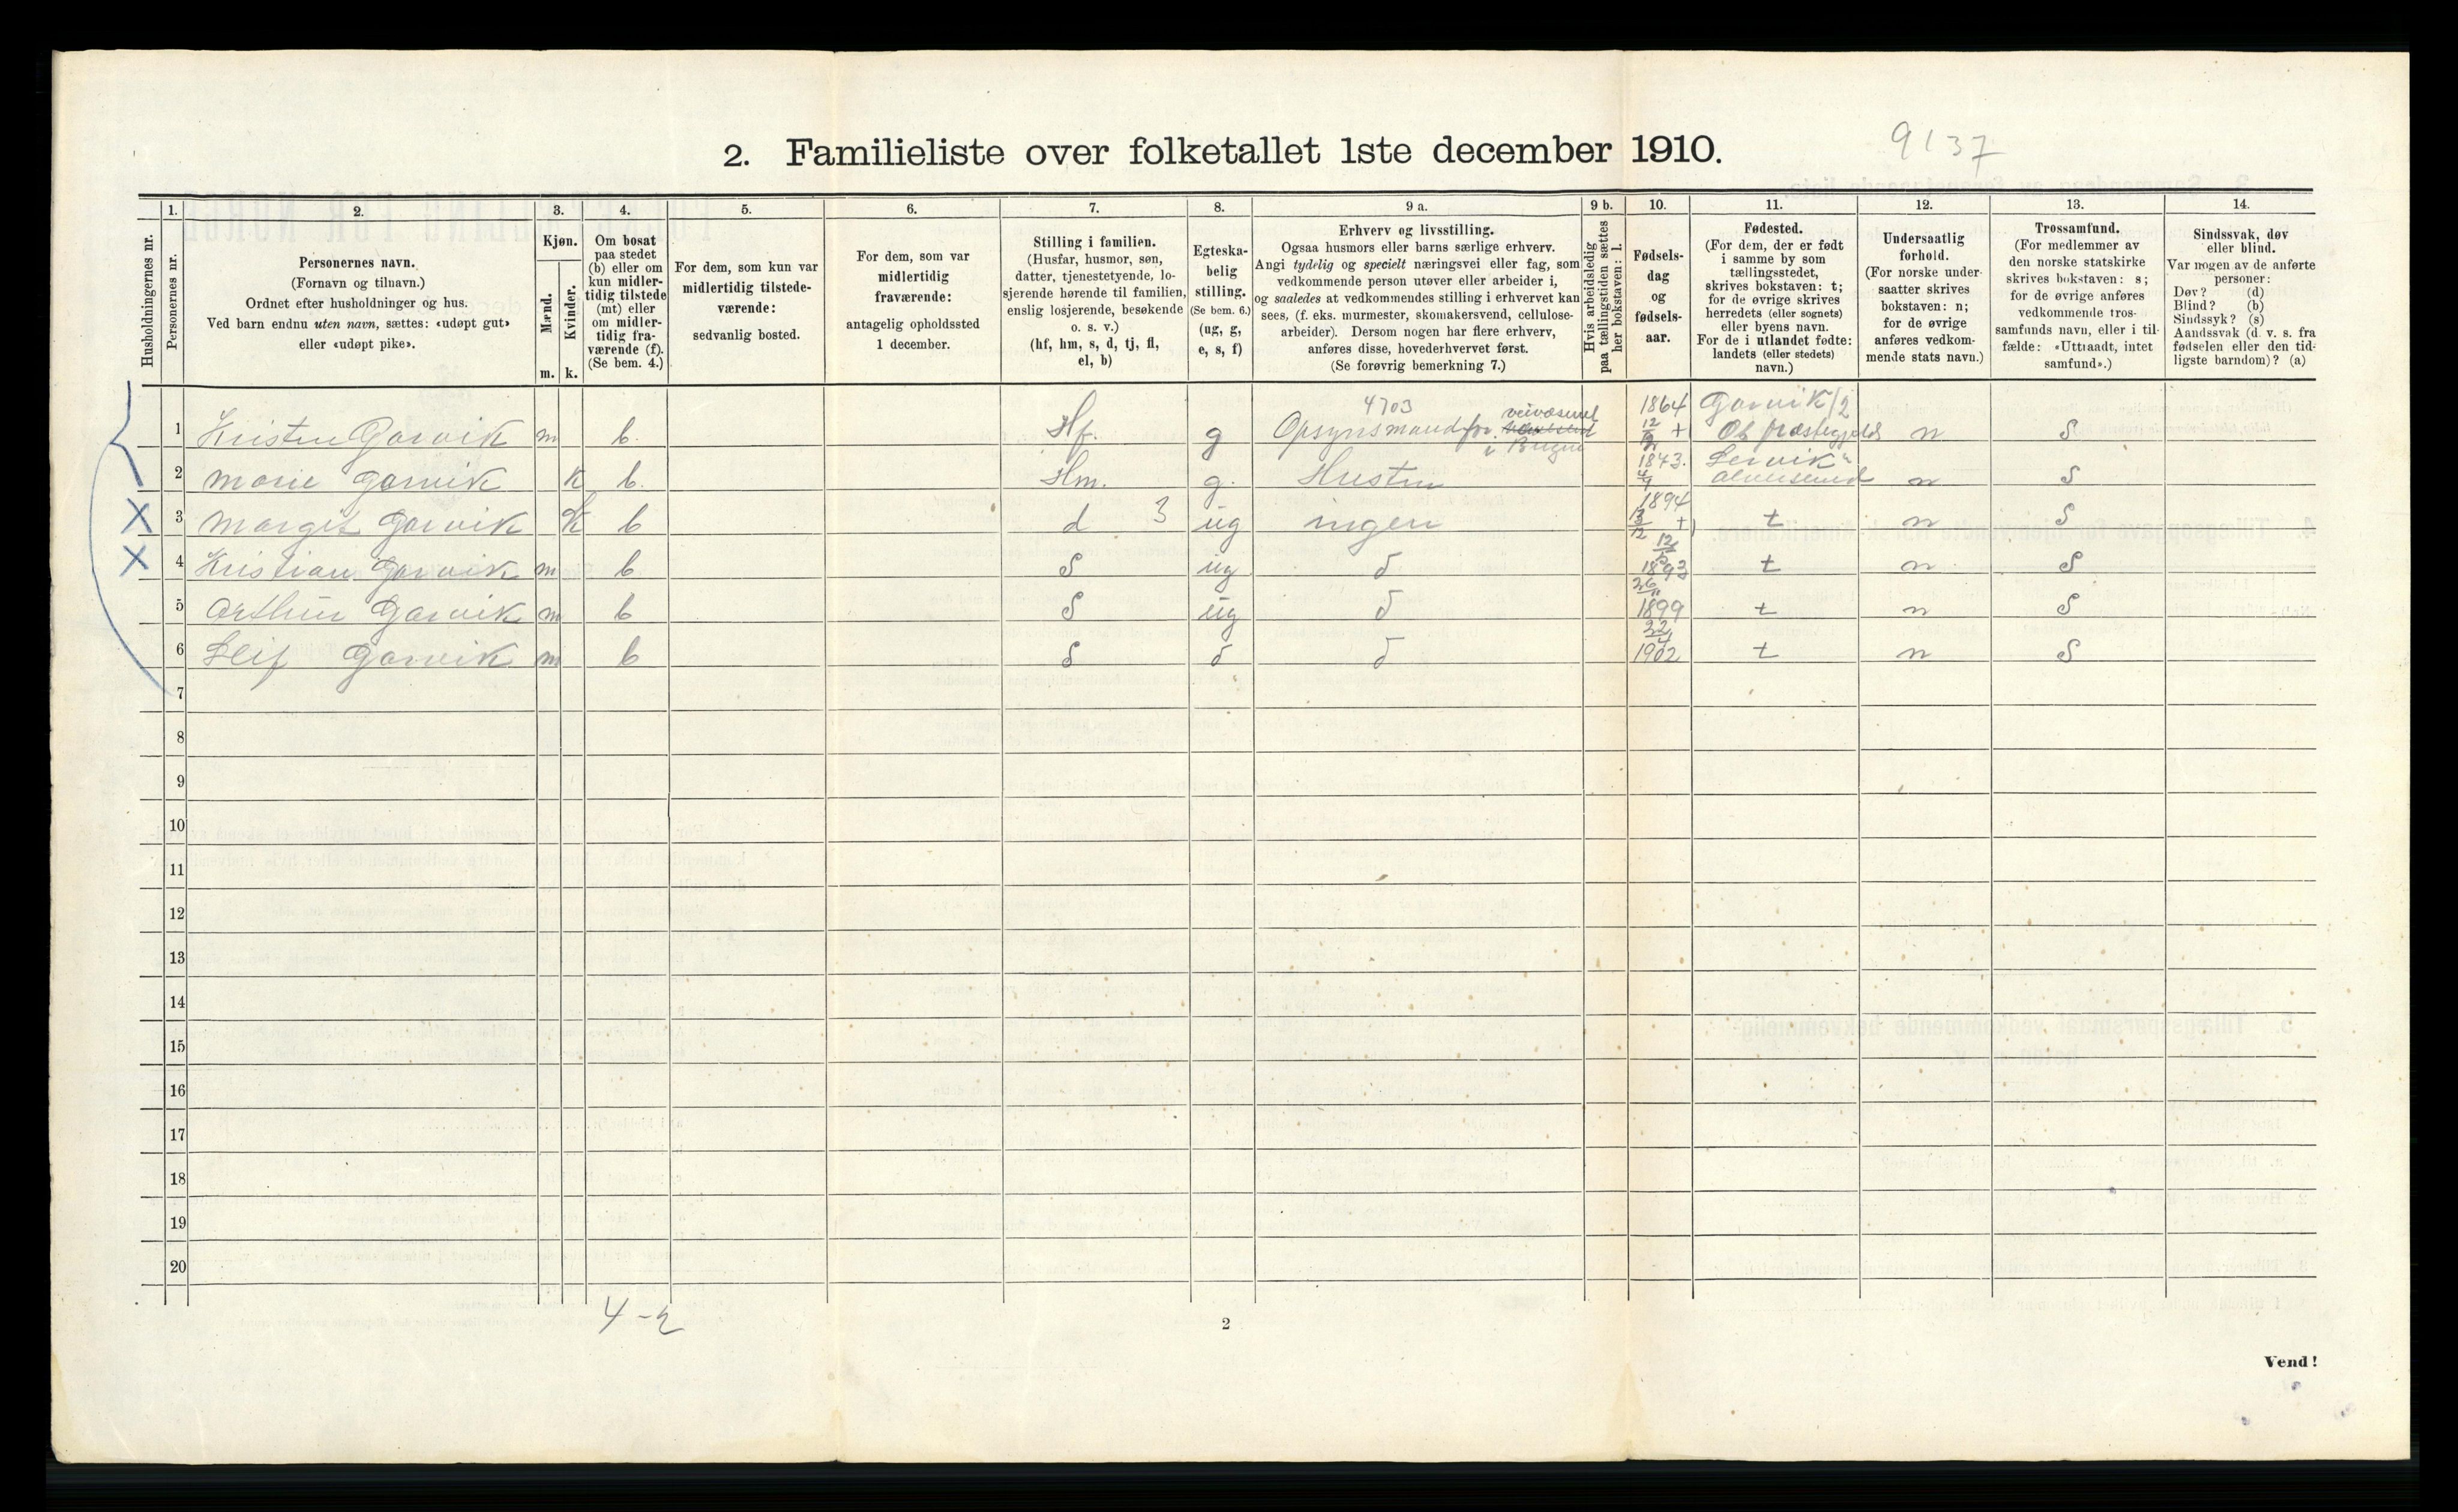 2. Familieliste over folketallet 1ste december 1910.
9137
Husholdningernes nr.
1.
Personernes nr.
2.
Personernes navn.
(Fornavn og tilnavn.)
Ordnet efter husholdninger og hus.
Ved barn endnu uten navn, sættes: «udøpt gut»
eller «udøpt pike».
3.
Kjøn.
Mænd.
Kvinder.
m. k.
4.
Om bosat
paa stedet
(b) eller om
kun midler-
tidig tilstede
(mt) eller
om midler-
tidig fra-
værende (f).
(Se bem. 4.)
5.
For dem, som kun var
midlertidig tilstede-
værende:
sedvanlig bosted.
6.
For dem, som var
midlertidig
fraværende:
antagelig opholdssted
1 december.
7.
Stilling i familien.
(Husfar, husmor, søn,
datter, tjenestetyende, lo-
sjerende hørende til familien,
enslig losjerende, besøkende
o. s. v.)
(hf, hm, s, d, tj, fl,
el, b)
8.
Egteska-
belig
stilling.
(Se bem. 6.)
(ug, g,
e, s, f)
9 a.
Erhverv og livsstilling.
Ogsaa husmors eller barns særlige erhverv.
Angi tydelig og specielt næringsvei eller fag, som
vedkommende person utøver eller arbeider i,
og saaledes at vedkommendes stilling i erhvervet kan
sees, (f. eks. murmester, skomakersvend, cellulose-
arbeider). Dersom nogen har flere erhverv,
anføres disse, hovederhvervet først.
(Se forøvrig bemerkning 7.)
9 b.
Hvis arbeidsledig
paa tællingstiden sættes
her bokstaven: l.
10.
Fødsels-
dag
og
fødsels-
aar.
11.
Fødested.
(For dem, der er født
i samme by som
tællingsstedet,
skrives bokstaven: t;
for de øvrige skrives
herredets (eller sognets)
eller byens navn.
For de i utlandet fødte:
landets (eller stedets)
navn.)
12.
Undersaatlig
forhold.
(For norske under-
saatter skrives
bokstaven: n;
for de øvrige
anføres vedkom-
mende stats navn.)
13.
Trossamfund.
(For medlemmer av
den norske statskirke
skrives bokstaven: s;
for de øvrige anføres
vedkommende tros-
samfunds navn, eller i til-
fælde: «Uttraadt, intet
samfund».)
14.
Sindssvak, døv
eller blind.
Var nogen av de anførte
personer:
Døv? (d)
Blind? (b)
Sindssyk? (s)
Aandssvak (d. v. s. fra
fødselen eller den tid-
ligste barndom)? (a)
4703
1 Kristen Garvik m b. Hf. g Opsynsmand for veivæsenet i Bergen 1864 Garvik n S
2 Marie Garvik k b. Hm. g. Hustru 1843. n S
3 Margit Garvik k b d 3 ug ingen 1894 t n S
4 Kristian Garvik m b S ug 1893 t n S
5 Arthur Garvik m b S ug 1899 t n S
6 Leif Garvik m b S 1902 t n S
7
8
9
10
11
12
13
14
15
16
17
18
19
20
4-2
2
Vend!